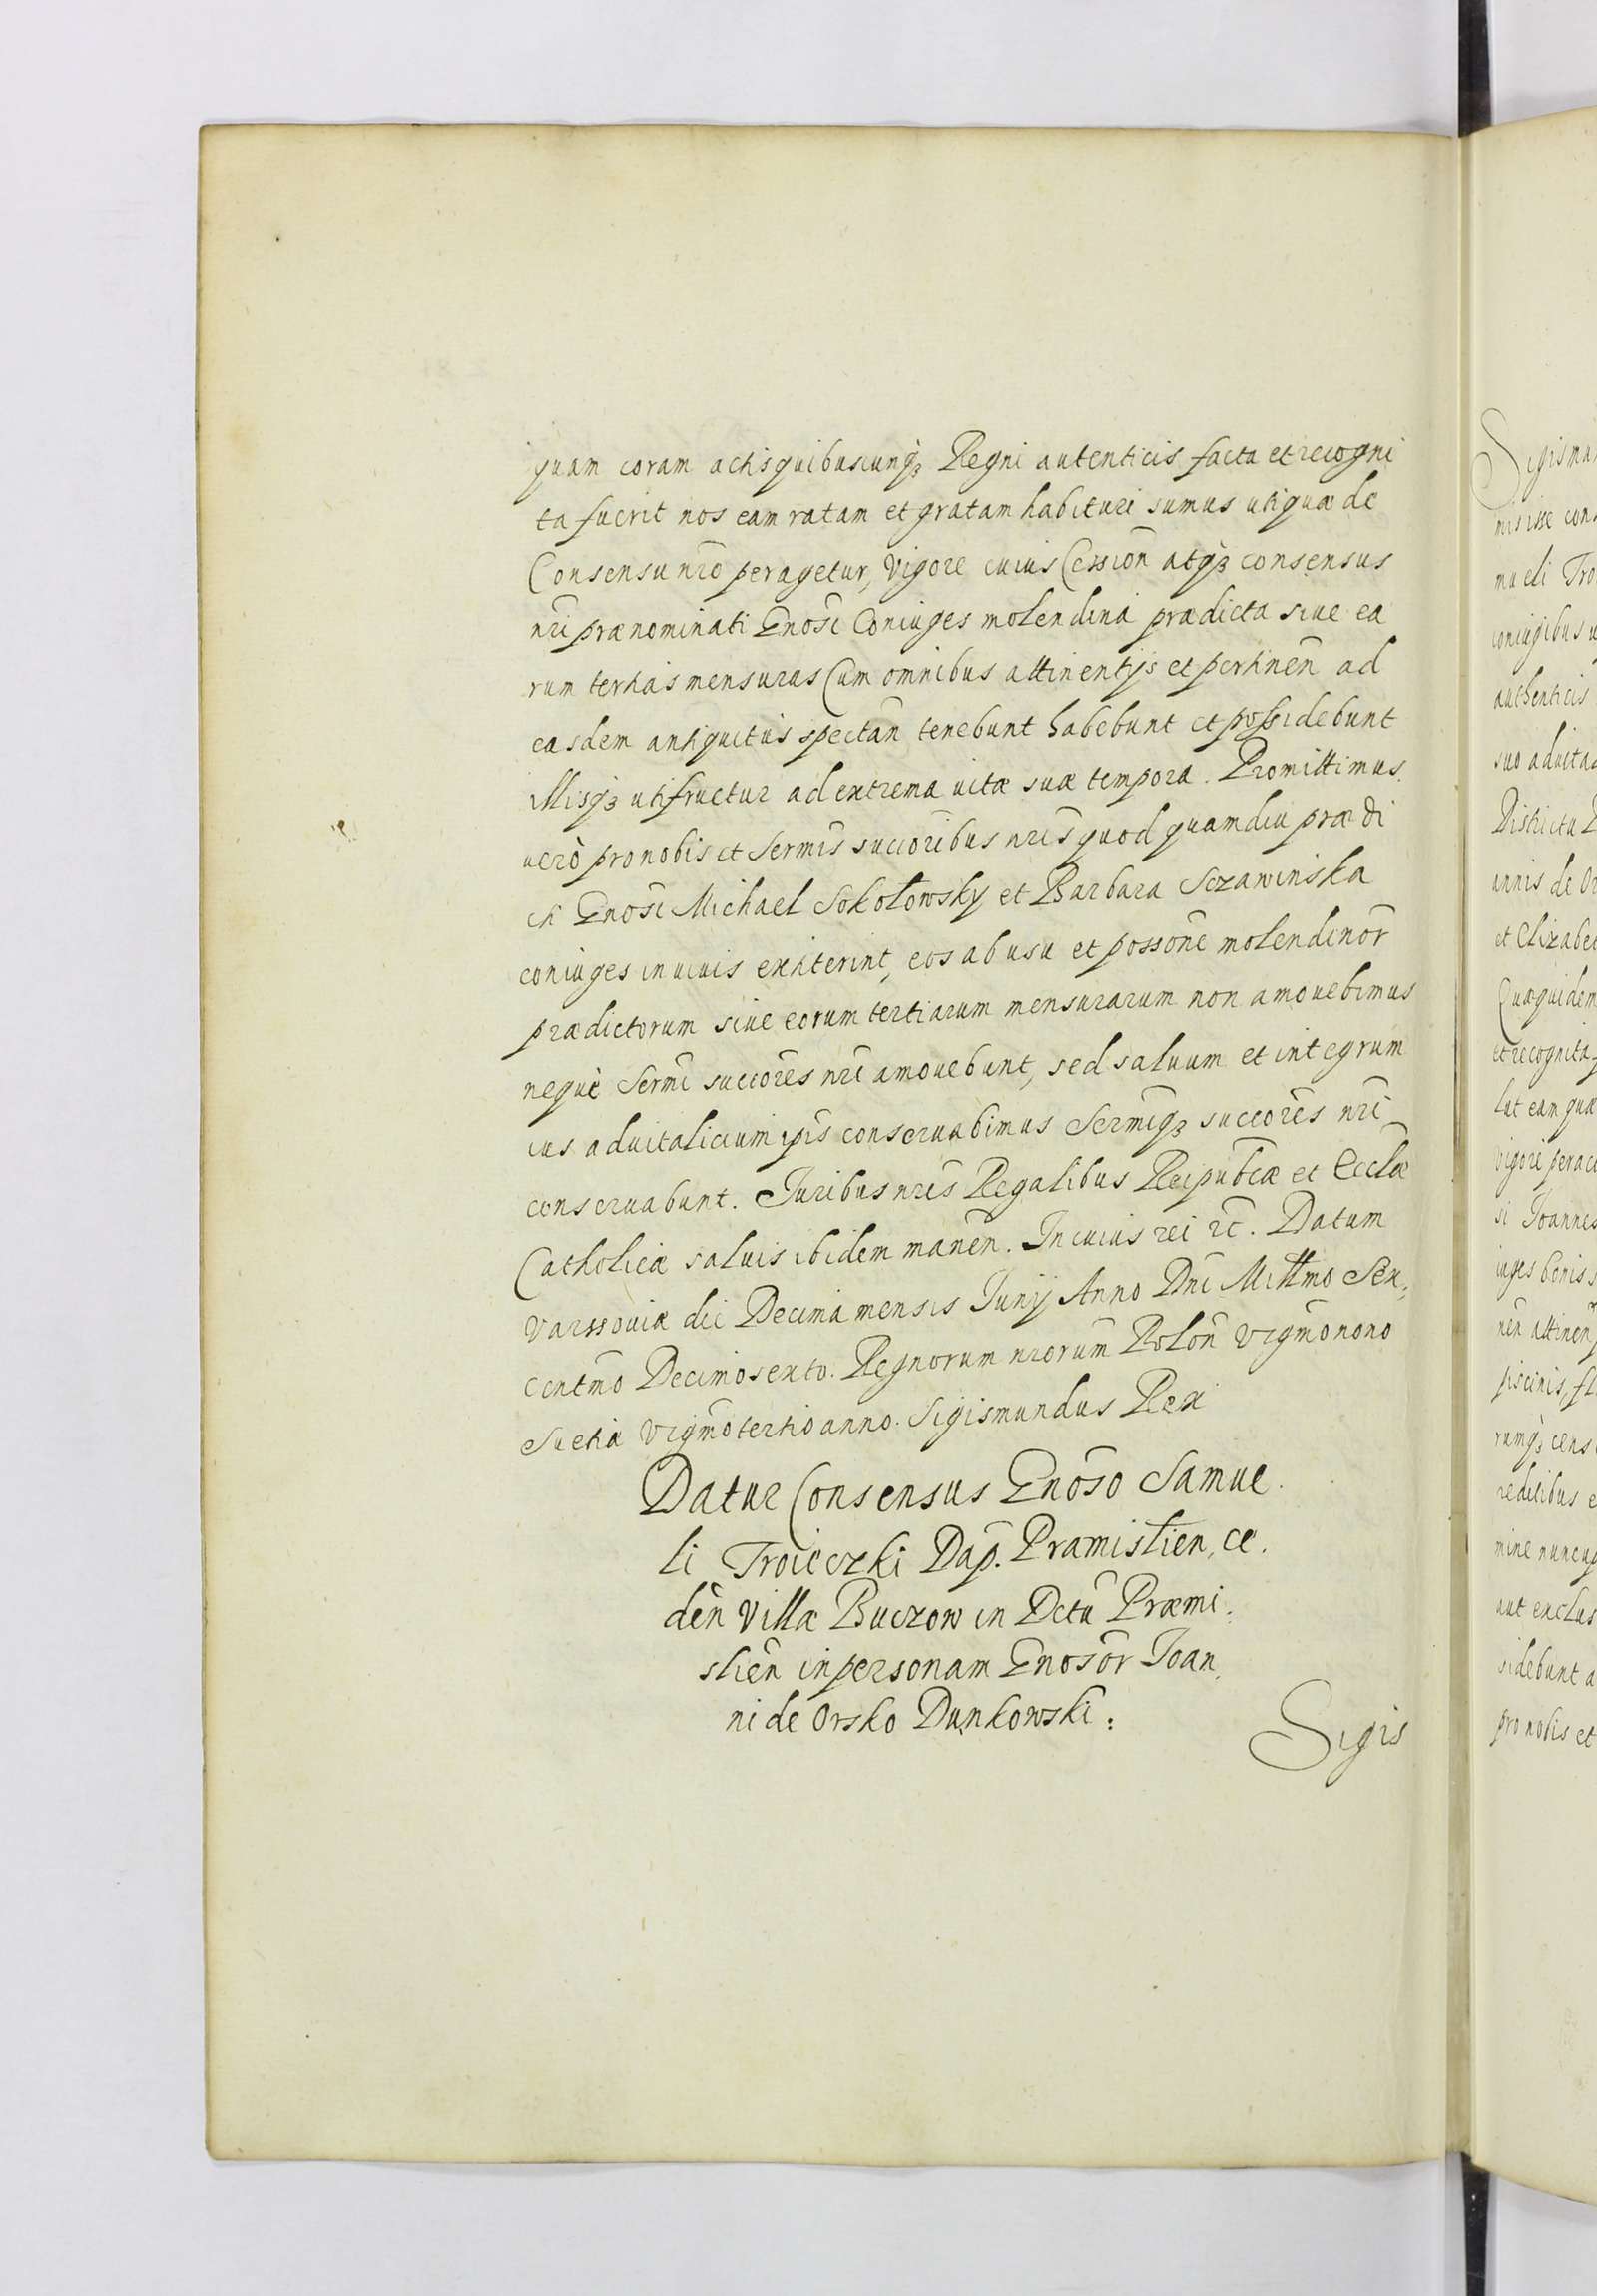 quam coram actis quibuscunq꜒ Regni autenticis facta et recogni
ta fuerit nos eam ratam et gratam habituri sumus utiquæ de
Consensu nrō peragetur, Vigore cuius Cession̄ atq꜒ consensus
nri prænominati Gnosi Coniuges molendina prædicta siue ea
rum tertias mensuras Cum omnibus attinentijs et pertinen̄ ad
easdem antiquitus spectan̄ tenebunt habebunt et possidebunt
illisq꜒ utifructur ad extrema vitæ suæ tempora. Promittimus
verò pro nobis et Sermis succoribus nris quod quamdiu prædi
cti Gnosi Michael Sokołowsky et Barbara Sczawinska
coniuges in viuis extiterint, eos ab usu et possone molendinor
prædictorum siue eorum tertiarum mensurarum non amouebimus
nequè Sermi succores nri amouebunt, sed saluum et integrum
ius aduitalicium ipis conseruabimus Sermiq꜒ succores nri
conseruabunt. Juribus nris Regalibus Reipubcæ et Ecclæ
Catholicæ saluis ibidem manen̄. In cuius rei rc̄. Datum
Varssouiæ die Decima mensis Junij Anno Dni Millmo Sex,
centmo Decimosexto. Regnorum nrorum Polon̄ vigmo nono
Suetiæ vigmo tertio anno. Sigismundus Rex
Datur Consensus Gnoso Samue
li Troieczki Dap. Pramislien, ce.
den Villæ Buczow in Dctu Præmi
slien̄ in personam Gnosor Joan
ni de Orsko Dunkowski:
Sigis
Sigismu
misisse cons
mueli Tro
coniugibus u
authenticis
suo aduita
Districtu P
annis de Or
et Elizabe
Quæquidem
et recognita f
lut eam quæ
vigore perac
si Joannes
iuges bonis s
nen attinen
piscinis, fl
rumq꜒ cens
reditibus e
mine nuncup
aut exclus
sidebunt a
pro nobis et